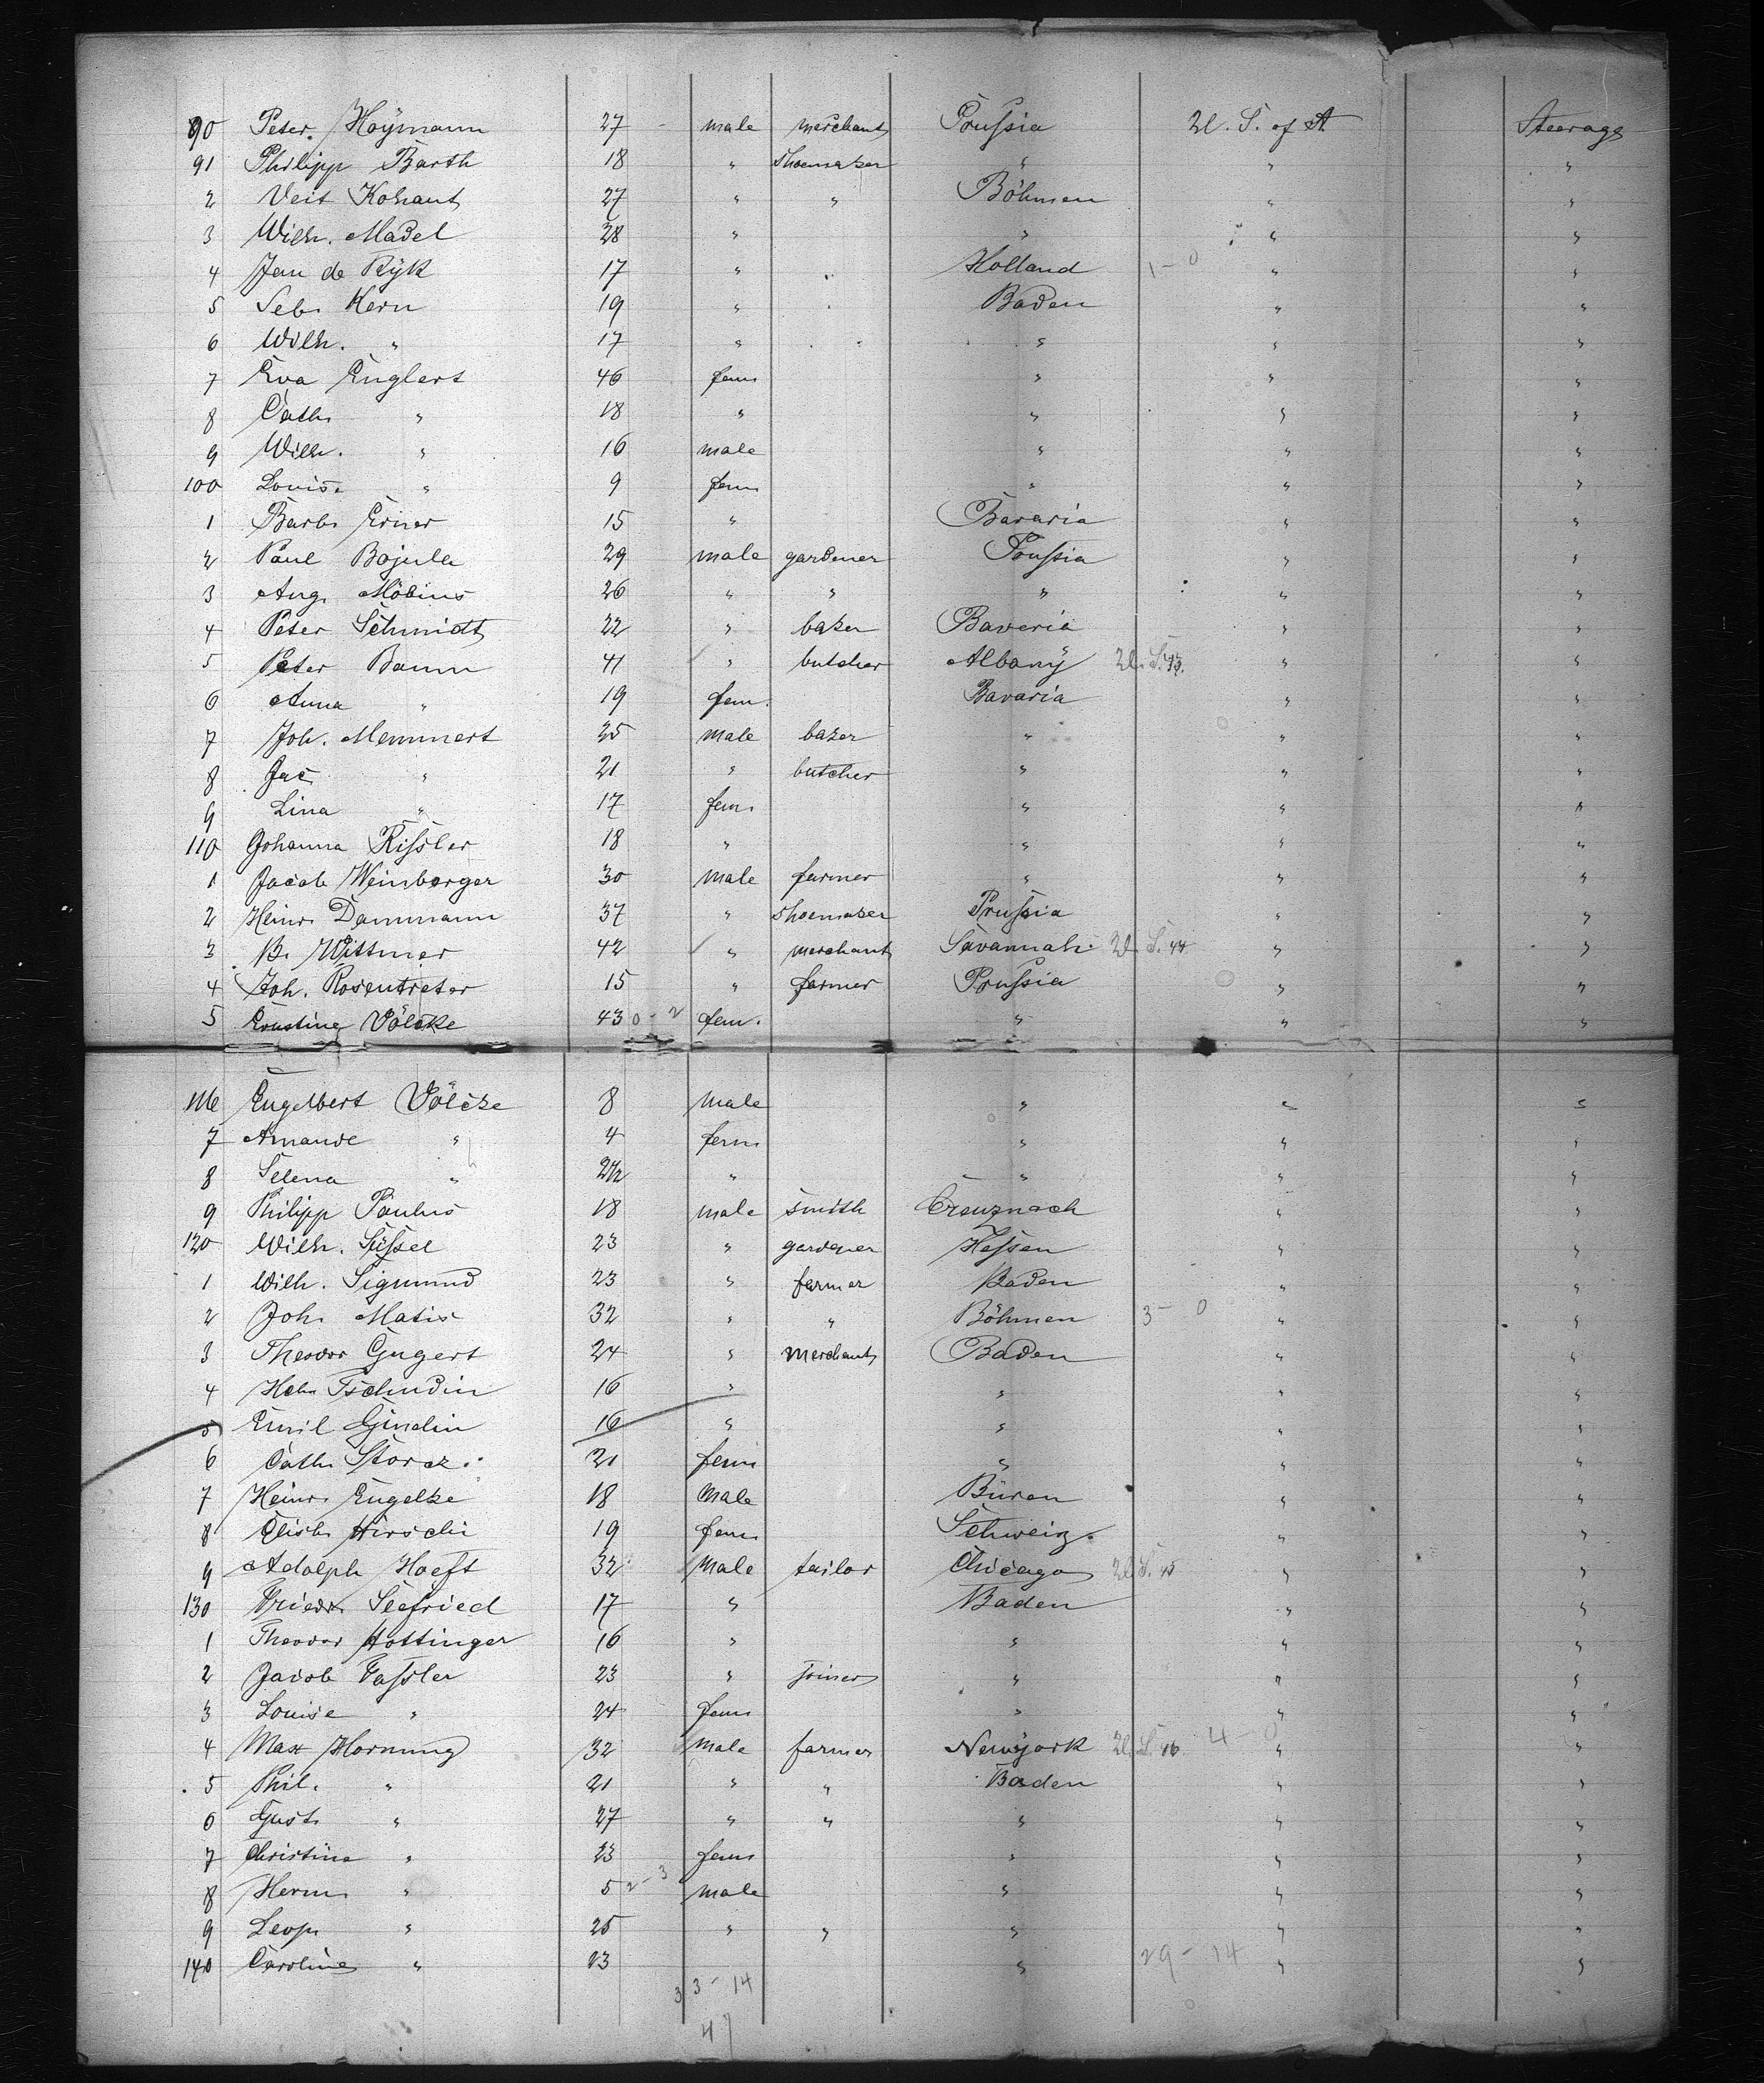 90 Peter Hoÿmann 27 male merchant Prußia U. S. of A. Steerage
91 Philipp Barth 18 " Shoemaker " " "
2 Veit Kohaut 27 " " Böhmen " "
3 Wilh. Madel 28 " " " "
4 Jan de Rÿk 17 " " Holland 1 - 0 " "
5 Seb. Kern 19 " Baden " "
6 Wilh. " 17 " " " "
7 Eva Englert 46 fem " " "
8 Cath. " 18 " " " "
9 Wilh. " 16 male " " "
100 Louise " 9 fem " " "
1 Barb. Erner 15 " Bavaria " "
2 Paul Bojula 29 male gardener Prußia " "
3 Aug. Möbius 26 " " " " "
4 Peter Schmidt 22 " baker Baveria " "
5 Peter Baum 41 " butcher Albanÿ U. S. 43. " "
6 Anna " 19 fem. Bavaria " "
7 Joh. Memmert 25 male baker " " "
8 Jac " 21 " butcher " " "
9 Lina " 17 fem. " " "
110 Johanna Rißler 18 " " " "
1 Jacob Weinberger 30 male farmer " " "
2 Heinr. Dammann 37 " shoemaker Prußia " "
3 B. Wittmer 42 " merchant Savannah U. S. 44 " "
4 Joh. Rosentreter 15 " farmer Prußia " "
5 Ernstine Völcke 43 0 - 2 fem. " " "
116 Engelbert Völcke 8 male " " "
7 Amande " 4 fem " " "
8 Selena " " " " "
9 Philipp Paulus 18 male smith Creuznach " "
120 Wilh. Süßel 23 " gardener Heßen " "
1 Wilh. Sigmund 23 " farmer Baden " "
2 Joh. Matis 32 " " Böhmen 3 - 0 " "
3 Theodor Gugert 24 " merchant Baden " "
4 Hch. Tschudin 16 " " " "
5 Emil Gindin 16 " " " "
6 Cath. Storcz 21 fem " " "
7 Heinr. Engelke 18 male Büren " "
8 Elisb. Hirschi 19 fem Schweiz. " "
9 Adolph Hoeft 32 male tailor Chicago U. S. 45 " "
130 Friedr. Seefried 17 " Baden " "
1 Theodor Hottinger 16 " " " "
2 Jacob Faßler 23 " Joiner " " "
3 Louise " 24 fem " " "
4 Max Hornung 32 male farmer Newÿork U. S. 46 4 - 0 " "
5 Phil. " 21 " " Baden " "
6 Gust. " 27 " " " " "
7 Christine " 23 fem " " "
8 Herm. " 5 2 - 3 male " " "
9 Leop. " 25 " " " " "
140 Caroline " 23 " 29 - 14 " "
33 - 14
47